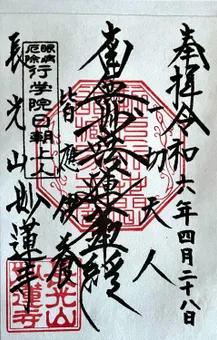 奉拝 令和六年四月二十八日
一切天人
南無妙法蓮華経
皆應供養
眼病
厄除
行学院日朝上人
長光山妙蓮寺
長光山
妙蓮寺